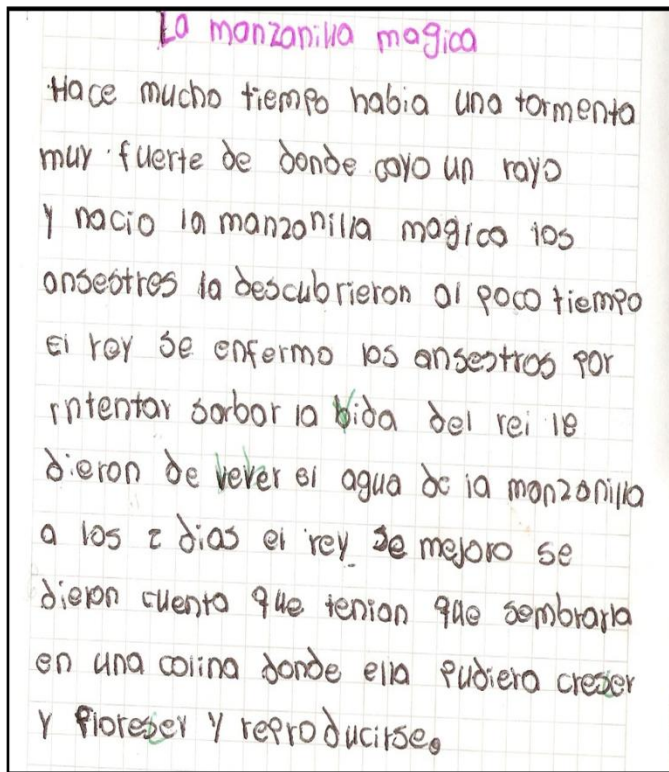 La manzanilla magica
Hace mucho tiempo habia una tormenta
muy fuerte de donde cayo un rayo
y nacio la manzanilla magica los
ansestres la descubrieron al poco tiempo
El rey se enfermo los ansestros por
intentar sarbar la bida del rei le
dieron de vever el agua de la manzanilla
a los 2 dias el rey se mejoro se
dieron cuenta que tenian que sembrarla
en una colina donde ella pudiera creser
y floreser y reproducirse.